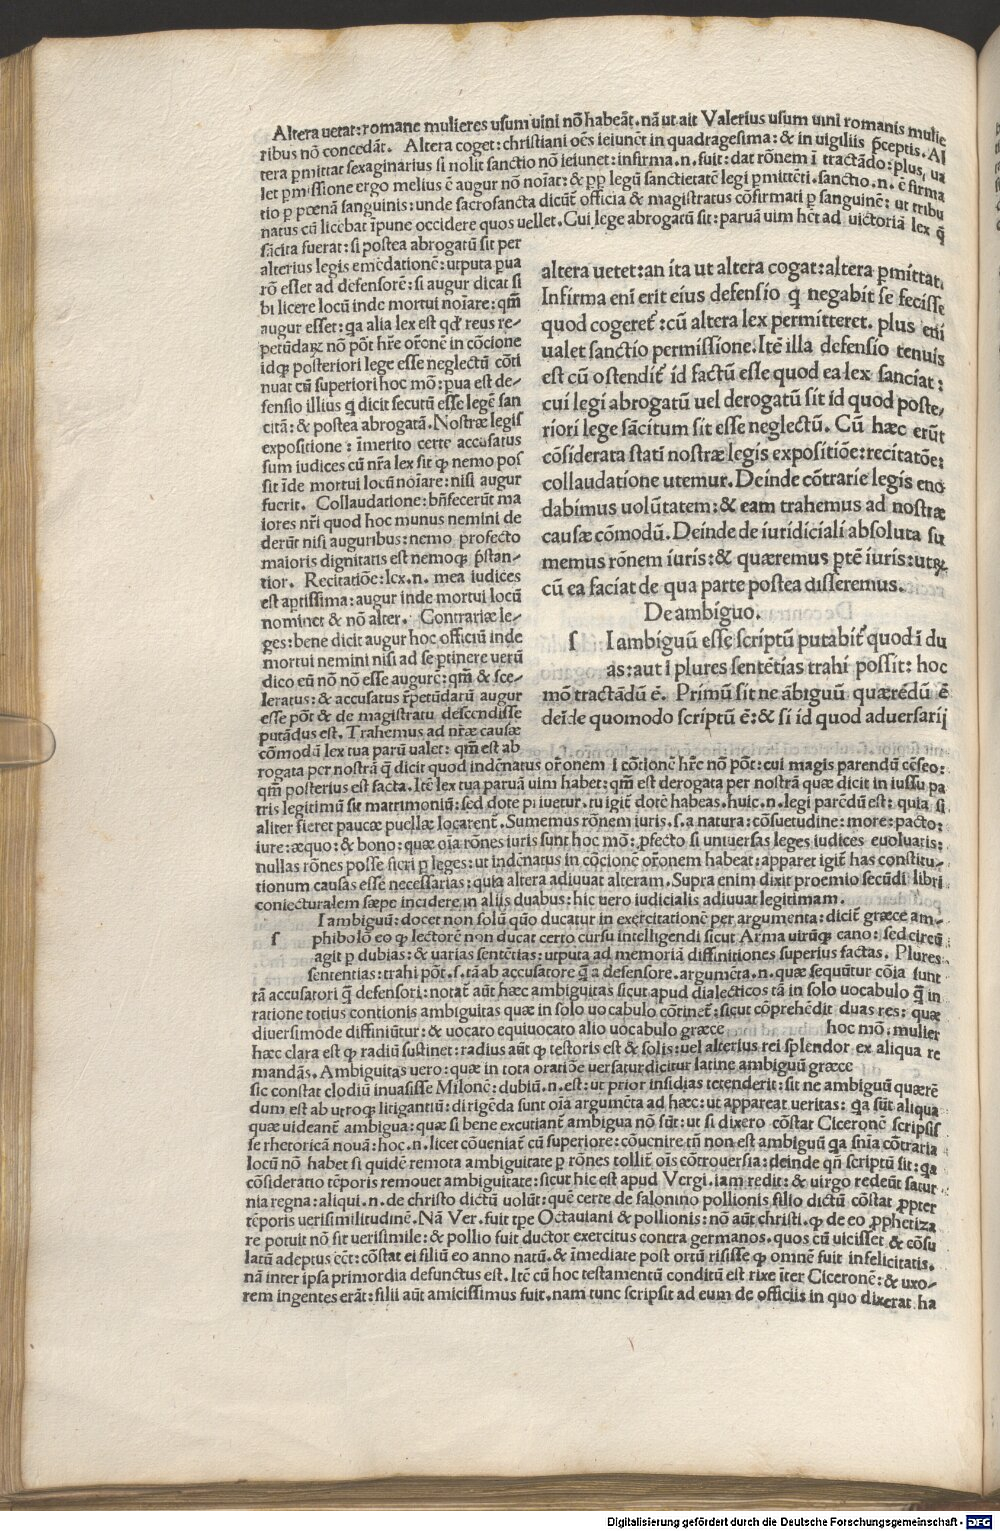 Altera uetat: romane mulieres usum uini nō habeāt. nā ut ait Valerius usum uini romanis mulie
ribus nō concedāt. Altera coget: christiani oēs ieiunēt in quadragesima: & in uigiliis p̄ceptis. Al
tera ꝑmittat sexaginarius si nolit sanctio nō ieiunet: infirma .n. fuit: dat rōnem ī tractādo: plus, ua
let ꝑmissione ergo melius ē augur nō noīat: & ꝓp legū sanctietatē legi ꝑmittēti. sanctio .n. ē firma
tio ꝑ pœnā sanguinis: unde sacrosancta dicūt officia & magistratus cōfirmati ꝑ sanguinē: ut tribu
natus cū licebat īpune occidere quos uellet. Cui lege abrogatū sit: paruā uim hēt ad uictoriā lex q̄
sācita fuerat: si postea abrogatū sit per
alterius legis emēdationē: utputa ꝑua
rō esset ad defensorē: si augur dicat si
bi licere locū inde mortui noīare: qm̄
augur esset: qa alia lex est qđ reus re-
petūdaꝝ nō pōt hr̄e or̄onē in cōcione
idqꝫ posteriori lege esse neglectū cōti
nuat cū superiori hoc mō: ꝑua est de-
fensio illius q dicit secutū esse legē san
citā: & postea abrogatā. Nostræ legis
expositione: īmerito certe accusatus
sum iudices cū nr̄a lex sit ꝙ nemo pos
sit īde mortui locū noīare: nisi augur
fuerit. Collaudatione: bn̄fecerūt ma
iores nr̄i quod hoc munus nemini de
derūt nisi auguribus: nemo profecto
maioris dignitatis est nemoqꝫ p̄stan-
tior. Recitatiōe: lex .n. mea iudices
est aptissima: augur inde mortui locū
nominet & nō alter. Contrariæ le-
ges: bene dicit augur hoc officiū inde
mortui nemini nisi ad se ꝑtinere uerū
dico eū nō nō esse augurē: qm̄ & sce-
leratus: & accusatus r̄petūdarū augur
esse pōt & de magistratu descendisse
putādus est. Trahemus ad nr̄æ causæ
cōmodū lex tua parū ualet: qm̄ est ab
altera uetet: an ita ut altera cogat: altera ꝑmittat.
Infirma enī erit eius defensio q negabit se fecisse
quod cogeret᷑: cū altera lex permitteret. plus enī
ualet sanctio permissione. Itē illa defensio tenuis
est cū ostendit᷑ id factū esse quod ea lex sanciat:
cui legi abrogatū uel derogatū sit id quod poste-
riori lege sācitum sit esse neglectū. Cū hæc erūt
cōsiderata statū nostræ legis expositiōe: recitatōe:
collaudatione utemur. Deinde cōtrarie legis eno
dabimus uolūtatem: & eam trahemus ad nostræ
causæ cōmodū. Deinde de iuridiciali absoluta su
memus rōnem iuris: & quæremus ꝑtē iuris: utꝝ
cū ea faciat de qua parte postea disseremus.
De ambiguo.
ſ I ambiguū esse scriptū putabit᷑ quod ī du
as: aut ī plures sentētias trahi possit: hoc
mō tractādū ē. Primū sit ne ābiguū quærēdū ē
deīde quomodo scriptū ē: & si id quod aduersarij
rogata per nostrā q̄ dicit quod indēnatus or̄onem ī cōtionē hr̄e nō pōt: cui magis parendū cēseo:
qm̄ posterius est facta. Itē lex tua paruā uim habet: qm̄ est derogata per nostrā quæ dicit in iussu pa
tris legitimū sit matrimoniū: sed dote priuetur. tu igit᷑ dotē habeas. huic .n. legi parēdū est: quia si
aliter fieret paucæ puellæ locarent᷑. Sumemus rōnem iuris .s. a natura: cōsuetudine: more: pacto:
iure: æquo: & bono: quæ oīa rōnes iuris sunt hoc mō: ꝓfecto si uniuersas leges iudices euoluaris:
nullas rōnes posse fieri ꝑ leges: ut indēnatus in cōcionē or̄onem habeat: apparet igit᷑ has constitu-
tionum causas esse necessarias: quia altera adiuuat alteram. Supra enim dixit proemio secūdi libri
coniecturalem sæpe incidere in aliis duabus: hic uero iudicialis adiuuat legitimam.
I ambiguū: docet non solū quō ducatur in exercitationē per argumenta: dicit᷑ græce am-
ſ phibolō eo ꝙ lectorē non ducat certo cursu intelligendi sicut Arma uirūqꝫ cano: sed circū
agit ꝑ dubias: & uarias sentētias: utputa ad memoriā diffinitiones superius factas. Plures
sententias: trahi pōt .s. tā ab accusatore q̄ a defensore. argumēta .n. quæ sequūtur cōia sunt
tā accusatori q̄ defensori: notat᷑ aūt hæc ambiguitas sicut apud dialecticos tā in solo uocabulo q̄ in
ratione totius contionis ambiguitas quæ in solo uocabulo cōtinet᷑: sicut cōprehēdit duas res: quæ
diuersimode diffiniūtur: & uocato equiuocato alio uocabulo græce hoc mō. mulier
hæc clara est ꝙ radiū sustinet: radius aūt ꝙ testoris est & solis: uel alterius rei splendor ex aliqua re
mandās. Ambiguitas uero: quæ in tota oratiōe uersatur dicitur latine ambiguū græce
sic constat clodiū inuasisse Milonē: dubiū .n. est: ut prior insidias tetenderit: sit ne ambiguū quærē
dum est ab utroqꝫ litigantiū: dirigēda sunt oīa argumēta ad hæc: ut appareat ueritas: qa sūt aliqua
quæ uideant᷑ ambigua: quæ si bene excutiant᷑ ambigua nō sūt: ut si dixero cōstat Ciceronē scripsis
se rhetoricā nouā: hoc .n. licet cōueniat᷑ cū superiore: cōuenire tn̄ non est ambiguū qa sn̄ia cōtraria
locū nō habet si quidē remota ambiguitate ꝑ rōnes tollit᷑ oīs cōtrouersia: deinde qn̄ scriptū sit: qa
cōsideratio tēporis remouet ambiguitatē: sicut hic est apud Vergi. iam redit: & uirgo redeūt satur
nia regna: aliqui .n. de christo dictū uolūt: quē certe de salonino pollionis filio dictū cōstat ꝓpter
tēporis uerisimilitudinē. Nā Ver. fuit tp̄e Octauiani & pollionis: nō aūt christi. ꝙ de eo ꝓphetiza
re potuit nō sit uerisimile: & pollio fuit ductor exercitus contra germanos. quos cū uicisset & cōsu
latū adeptus eēt: cōstat ei filiū eo anno natū. & īmediate post ortū risisse ꝙ omnē fuit infelicitatis.
nā inter ipsa primordia defunctus est. Itē cū hoc testamentū conditū est rixe īter Ciceronē: & uxo-
rem ingentes erāt: filii aūt amicissimus fuit. nam tunc scripsit ad eum de officiis in quo dixerat ha
Digitalisierung gefördert durch die Deutsche Forschungsgemeinschaft - DFG